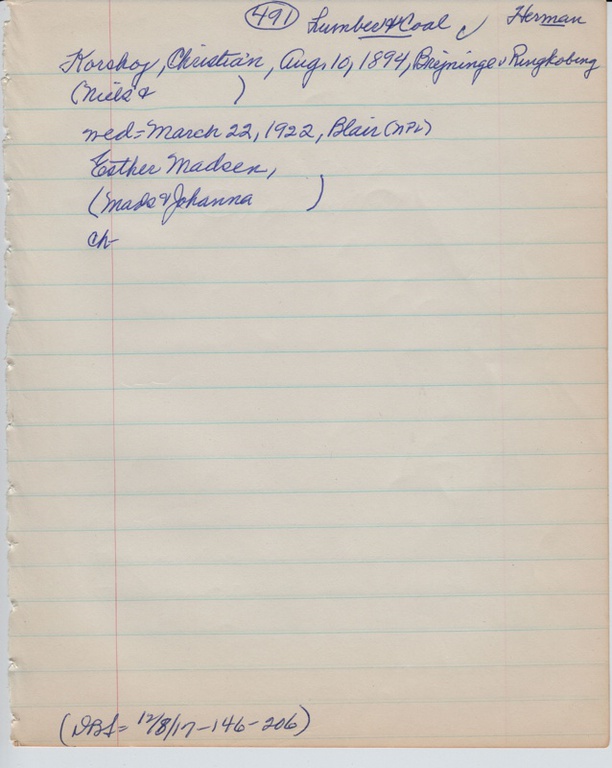 491 Lumber & Coal ✓ Herman
Korshoj, Christian, Aug. 10, 1894, Brejninge v Ringkobing
(Niels & )
wed = March 22, 1922, Blair (NPL)
Esther Madsen,
(Mads & Johanna )
ch-
(DBS = 12/8/17-146-206)